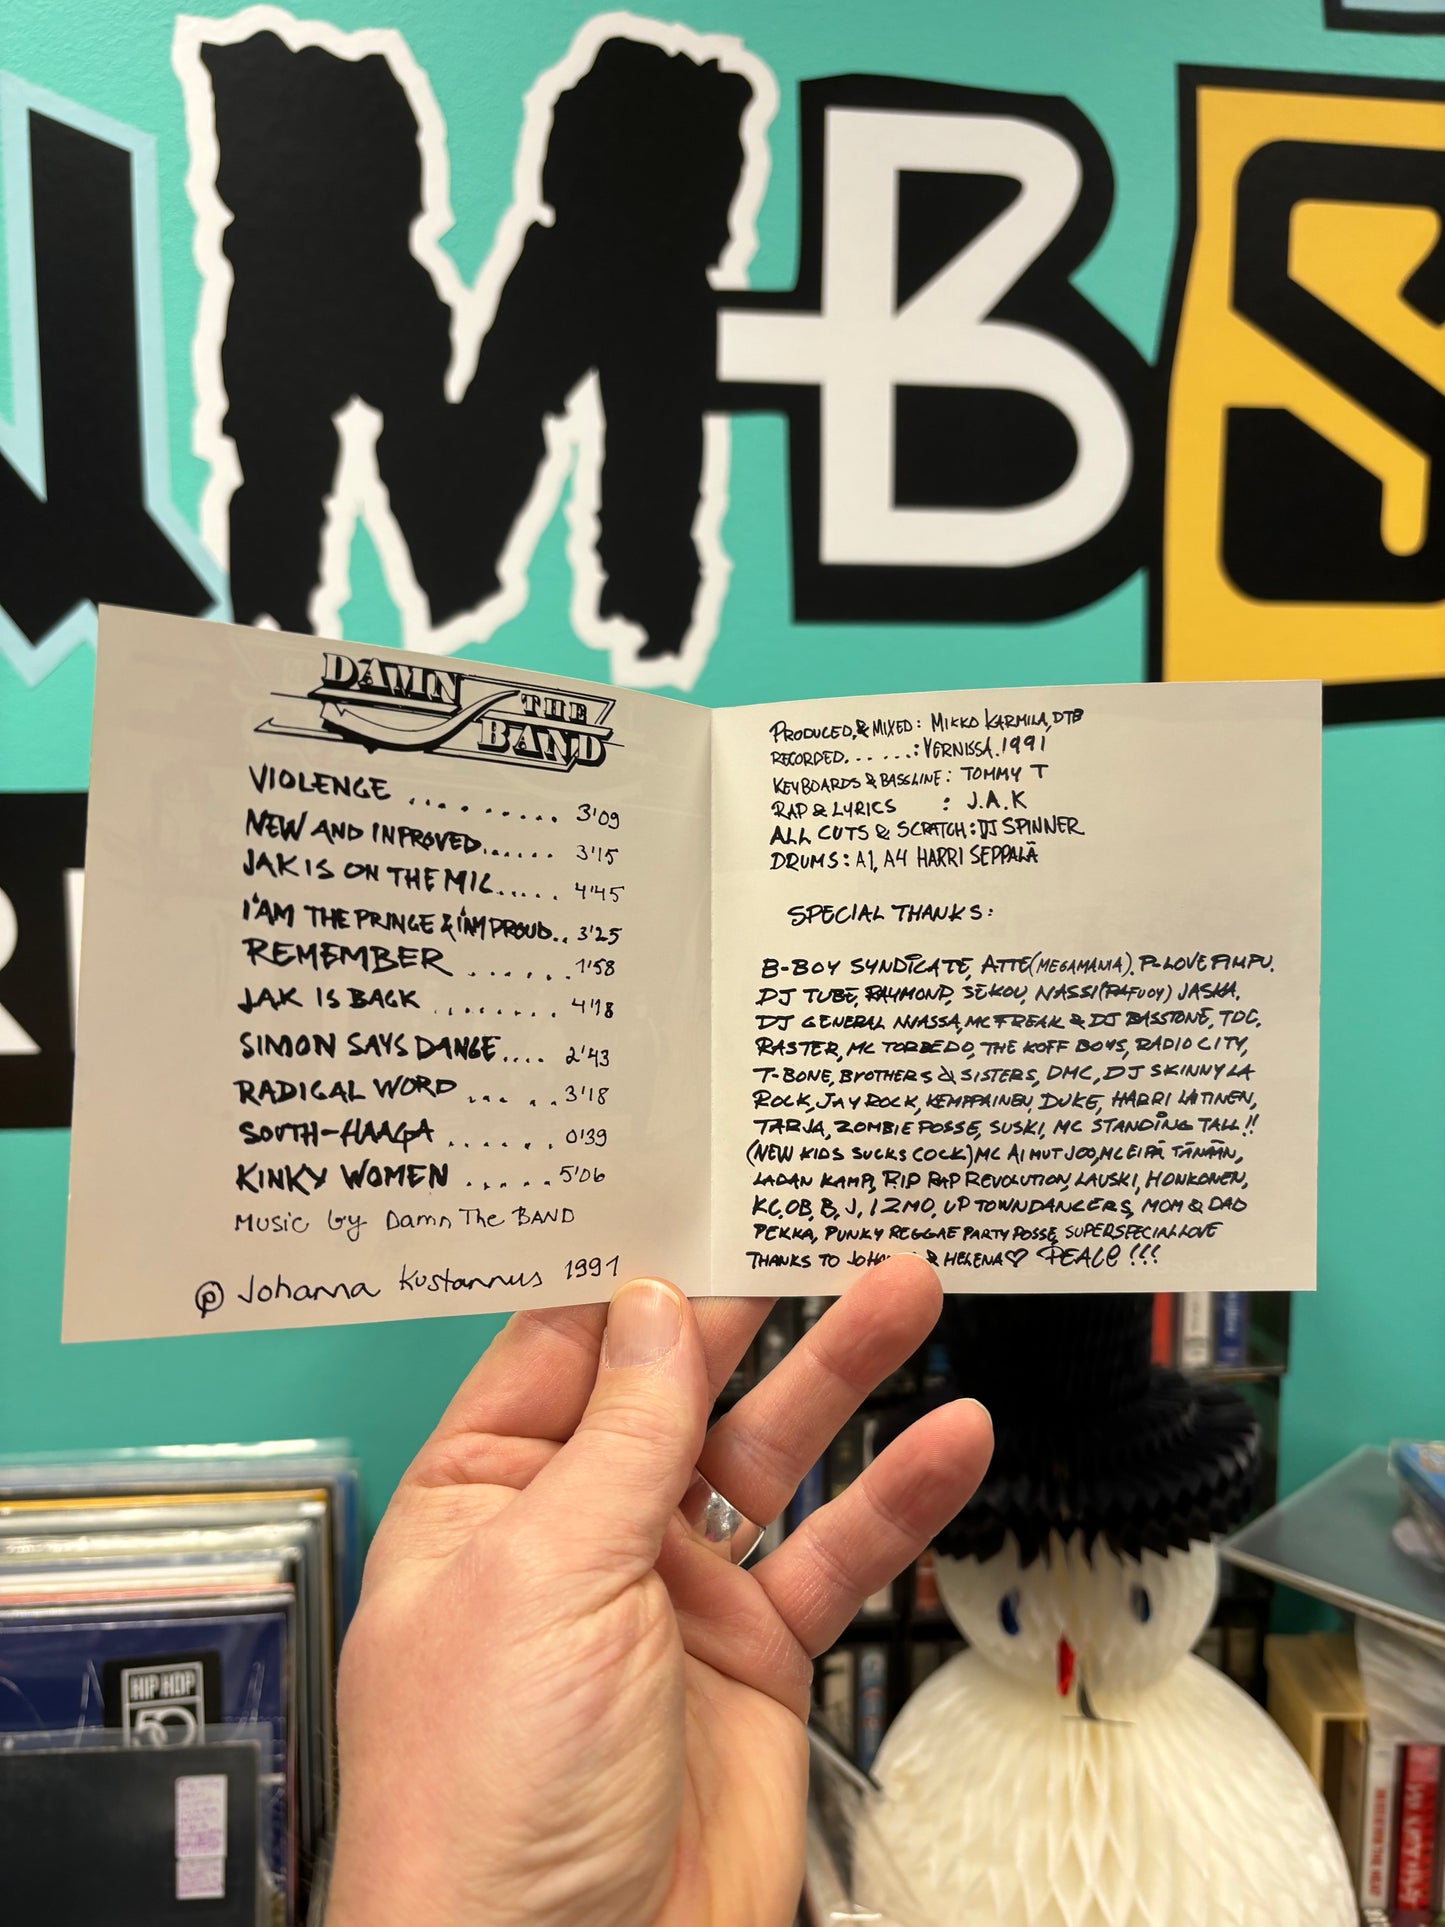 MBS
R
DAMN
THE
BAND
VIOLENCE .......... 3'09
NEW AND INPROVED...... 3'15
JAK IS ON THE MIC..... 4'45
I'AM THE PRINCE & I'AM PROUD.. 3'25
REMEMBER ...... 1'58
JAK IS BACK ........ 4'18
SIMON SAYS DANCE.... 2'43
RADICAL WORD ... .. 3'18
SOUTH-HAAGA ...... 0'39
KINKY WOMEN ..... 5'06
Music by Damn The BAND
℗ Johanna Kustannus 1991
PRODUCED & MIXED: MIKKO KARMILA, DTB
RECORDED. . . . . . .: VERNISSA. 1991
KEYBOARDS & BASSLINE: TOMMY T
RAP & LYRICS : J.A.K
ALL CUTS & SCRATCH: DJ SPINNER
DRUMS: A1, A4 HARRI SEPPÄLÄ
SPECIAL THANKS:
B-BOY SYNDICATE, ATTE (MEGAMANIA). P-LOVE PIMPU.
DJ TUBE, RAYMOND, SEKOU, NASSI (RAFUOY) JASKA,
DJ GENERAL NJASSA, MC FREAK & DJ BASSTONE, TDC,
RASTER, MC TORBEDO, THE KOFF BOYS, RADIO CITY,
T-BONE, BROTHERS & SISTERS, DMC, DJ SKINNY LA
ROCK, JAY ROCK, KEMPPAINEN, DUKE, HARRI LAITINEN,
TARJA, ZOMBIE POSSE, SUSKI, MC STANDING TALL!!
(NEW KIDS SUCKS COCK) MC AI MUT JOO, MC EIPÄ TÄNÄÄN,
LADAN KAMP, R.I.P RAP REVOLUTION, LAUSKI, HONKONEN,
KC, OB, B, J, IZMO, UP TOWN DANCERS, MOM & DAD
PEKKA, PUNKY REGGAE PARTY POSSE, SUPERSPECIAL LOVE
THANKS TO & HELENA♡ PEACE!!!
HIP HOP
50